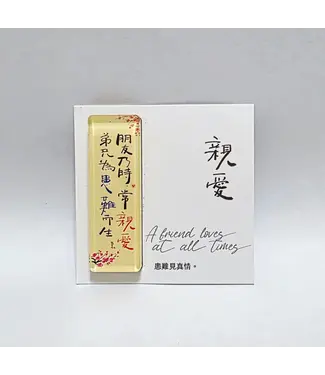 朋友乃時常親愛
弟兄為患難而生
親愛
A friend loves
at all times
患難見真情。